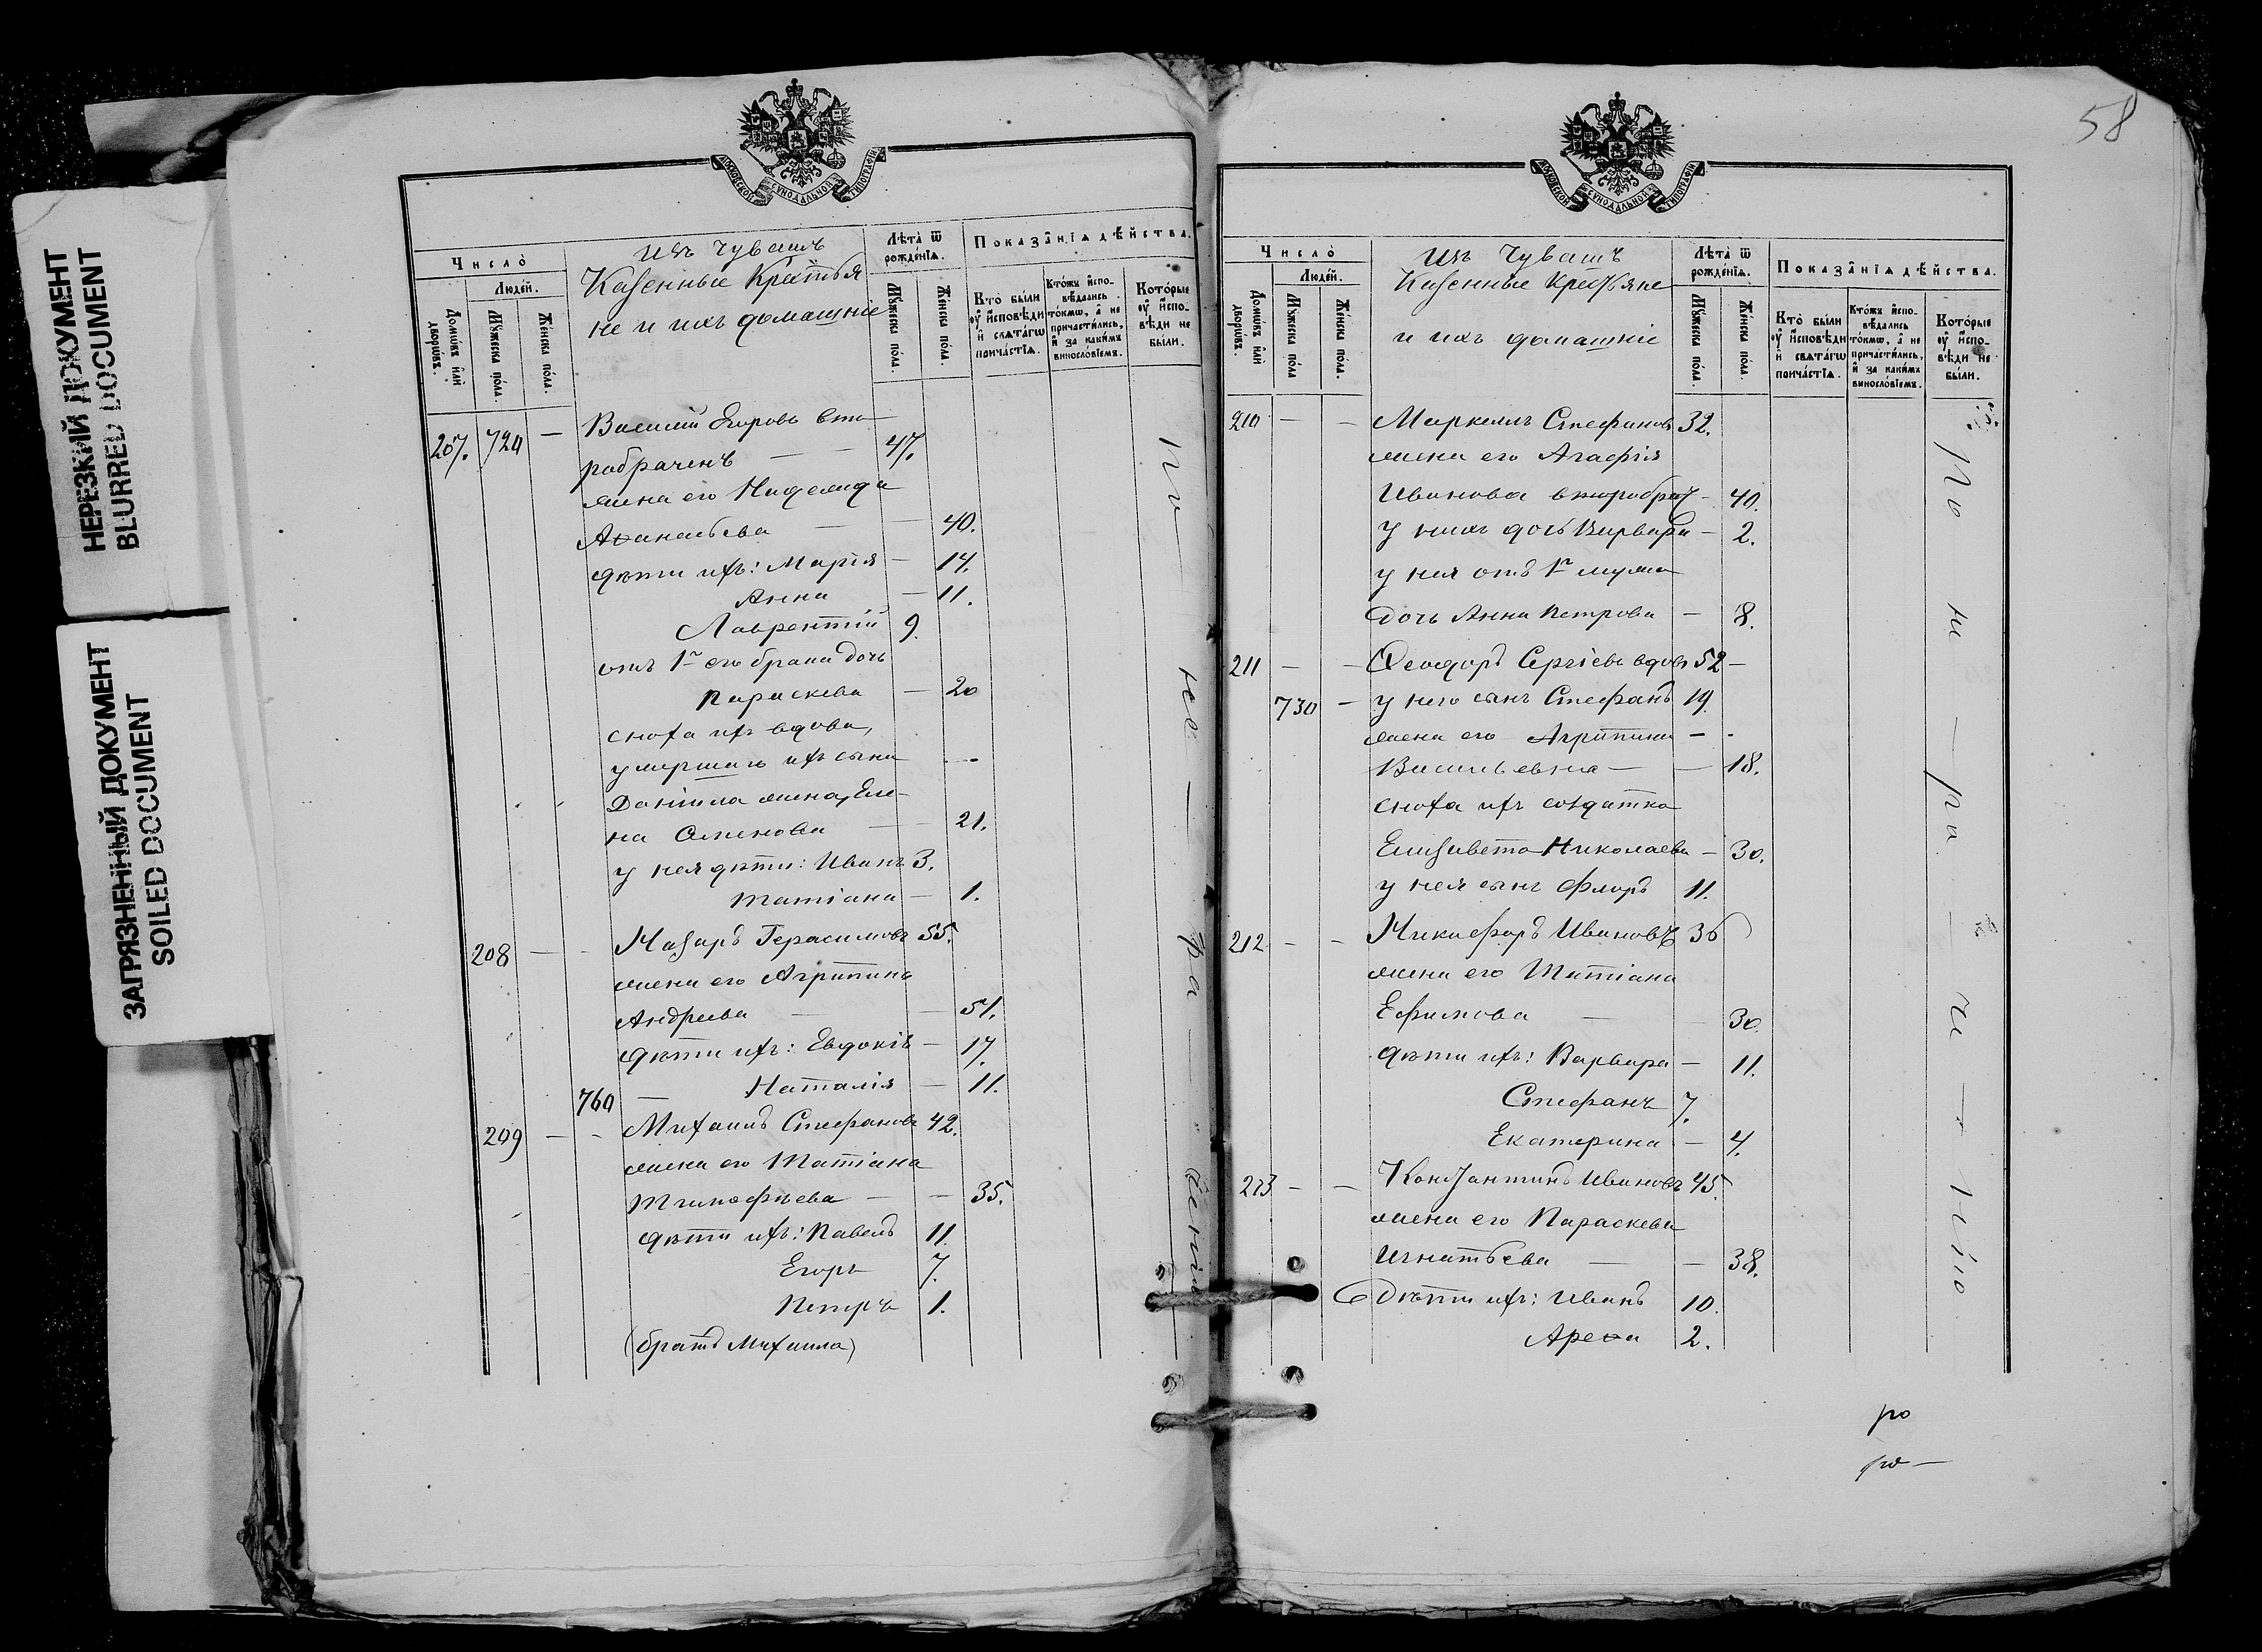 НЕРЕЗКИЙ ДОКУМЕНТ
BLURRED DOCUMENT
ЗАГРЯЗНЕННЫЙ ДОКУМЕНТ
SOILED DOCUMENT
МОСКОВСКОЙ СѴНОДАЛЬНОЙ ТИПОГРАФІИ
Число̀
Люде́й.
Домѡ́въ и҆лѝ дворѡ́въ.
Мꙋ́жеска по́ла.
Же́нска по́ла.
изъ Чувашъ
Казенные Крестья
не и ихъ домашніе
Лѣта̀ ѿ рожде́нїѧ.
Мꙋ́жеска по́ла.
Же́нска по́ла.
Показа̂нїѧ дѣ́йства.
Кто̀ бы́ли оу҆ и҆сповѣди и҆ свѧта́гѡ прича́стїѧ.
Кто́жъ и҆спо-вѣдались то́кмѡ, а҆ не причасти́лись, и҆ за каки́мъ винослóвїемъ.
Кото́рые оу҆ и҆спо-вѣди не бы́ли.
207. 724 — Василій Егоровъ вто
робраченъ — — 47.
жена его Надежда
Аѳанасьева — — 40.
дѣти ихъ: Марія — 14.
Анна — 11.
Лаврентій 9.
отъ 1г его брака дочь
Параскева — 20
сноха ихъ вдова,
умершаго ихъ сына
Даніила жена, Еле-
на Семенова — 21.
у нея дѣти: Иванъ 3.
Татіана — 1.
208 — - Назаръ Герасимовъ 55.
жена его Агрипина
Андреева — — 51.
дѣти ихъ: Евдокія — 17.
760 — Наталія — 11.
209 — - Михаилъ Стефановъ 42.
жена его Татіана
Тимофѣева — — 35.
дѣти ихъ: Павелъ 11.
Егоръ 7.
Петръ 1.
(братъ Михаила)
58
МОСКОВСКОЙ СѴНОДАЛЬНОЙ ТИПОГРАФІИ
Число̀
Люде́й.
Домѡ́въ и҆лѝ дворѡ́въ.
Мꙋ́жеска по́ла
Же́нска по́ла.
Изъ Чувашъ
Казенные Крестьяне
и ихъ домашніе
Лѣта̀ ѿ рожде́нїѧ.
Мꙋ́жеска по́ла.
Же́нска по́ла.
Показа̂нїѧ дѣ́йства.
Кто̀ бы́ли оу҆ и҆сповѣди и҆ свѧта́гѡ прича́стїѧ.
Кто́жъ и҆спо-вѣдались то́кмѡ, а҆ не причасти́лись, и҆ за каки́мъ винослóвїемъ.
Кото́рые оу҆ и҆спо-вѣди не бы́ли.
210 — — Маркелъ Стефановъ 32.
жена его Агафія
Иванова второбрач — 40.
у нихъ дочь Варвара — 2.
у нея отъ 1г мужа
дочь Анна Петрова — 8.
211 — — Ѳеодоръ Сергіевъ вдовъ 52 —
730 — у него сынъ Стефанъ 19.
жена его Агрипина — -
Васильевна — — 18.
сноха ихъ солдатка
Елизавета Николаева — 30.
у нея сынъ Флоръ 11.
212 — — Никифоръ Ивановъ 36
жена его Татіана
Ефимова — 30.
дѣти ихъ: Варвара — 11.
Стефанъ 7.
Екатерина — 4.
213 — — Константинъ Ивановъ 45.
жена его Параскева
Игнатьева — — 38.
Дѣти ихъ: Иванъ 10.
Ареѳа 2.